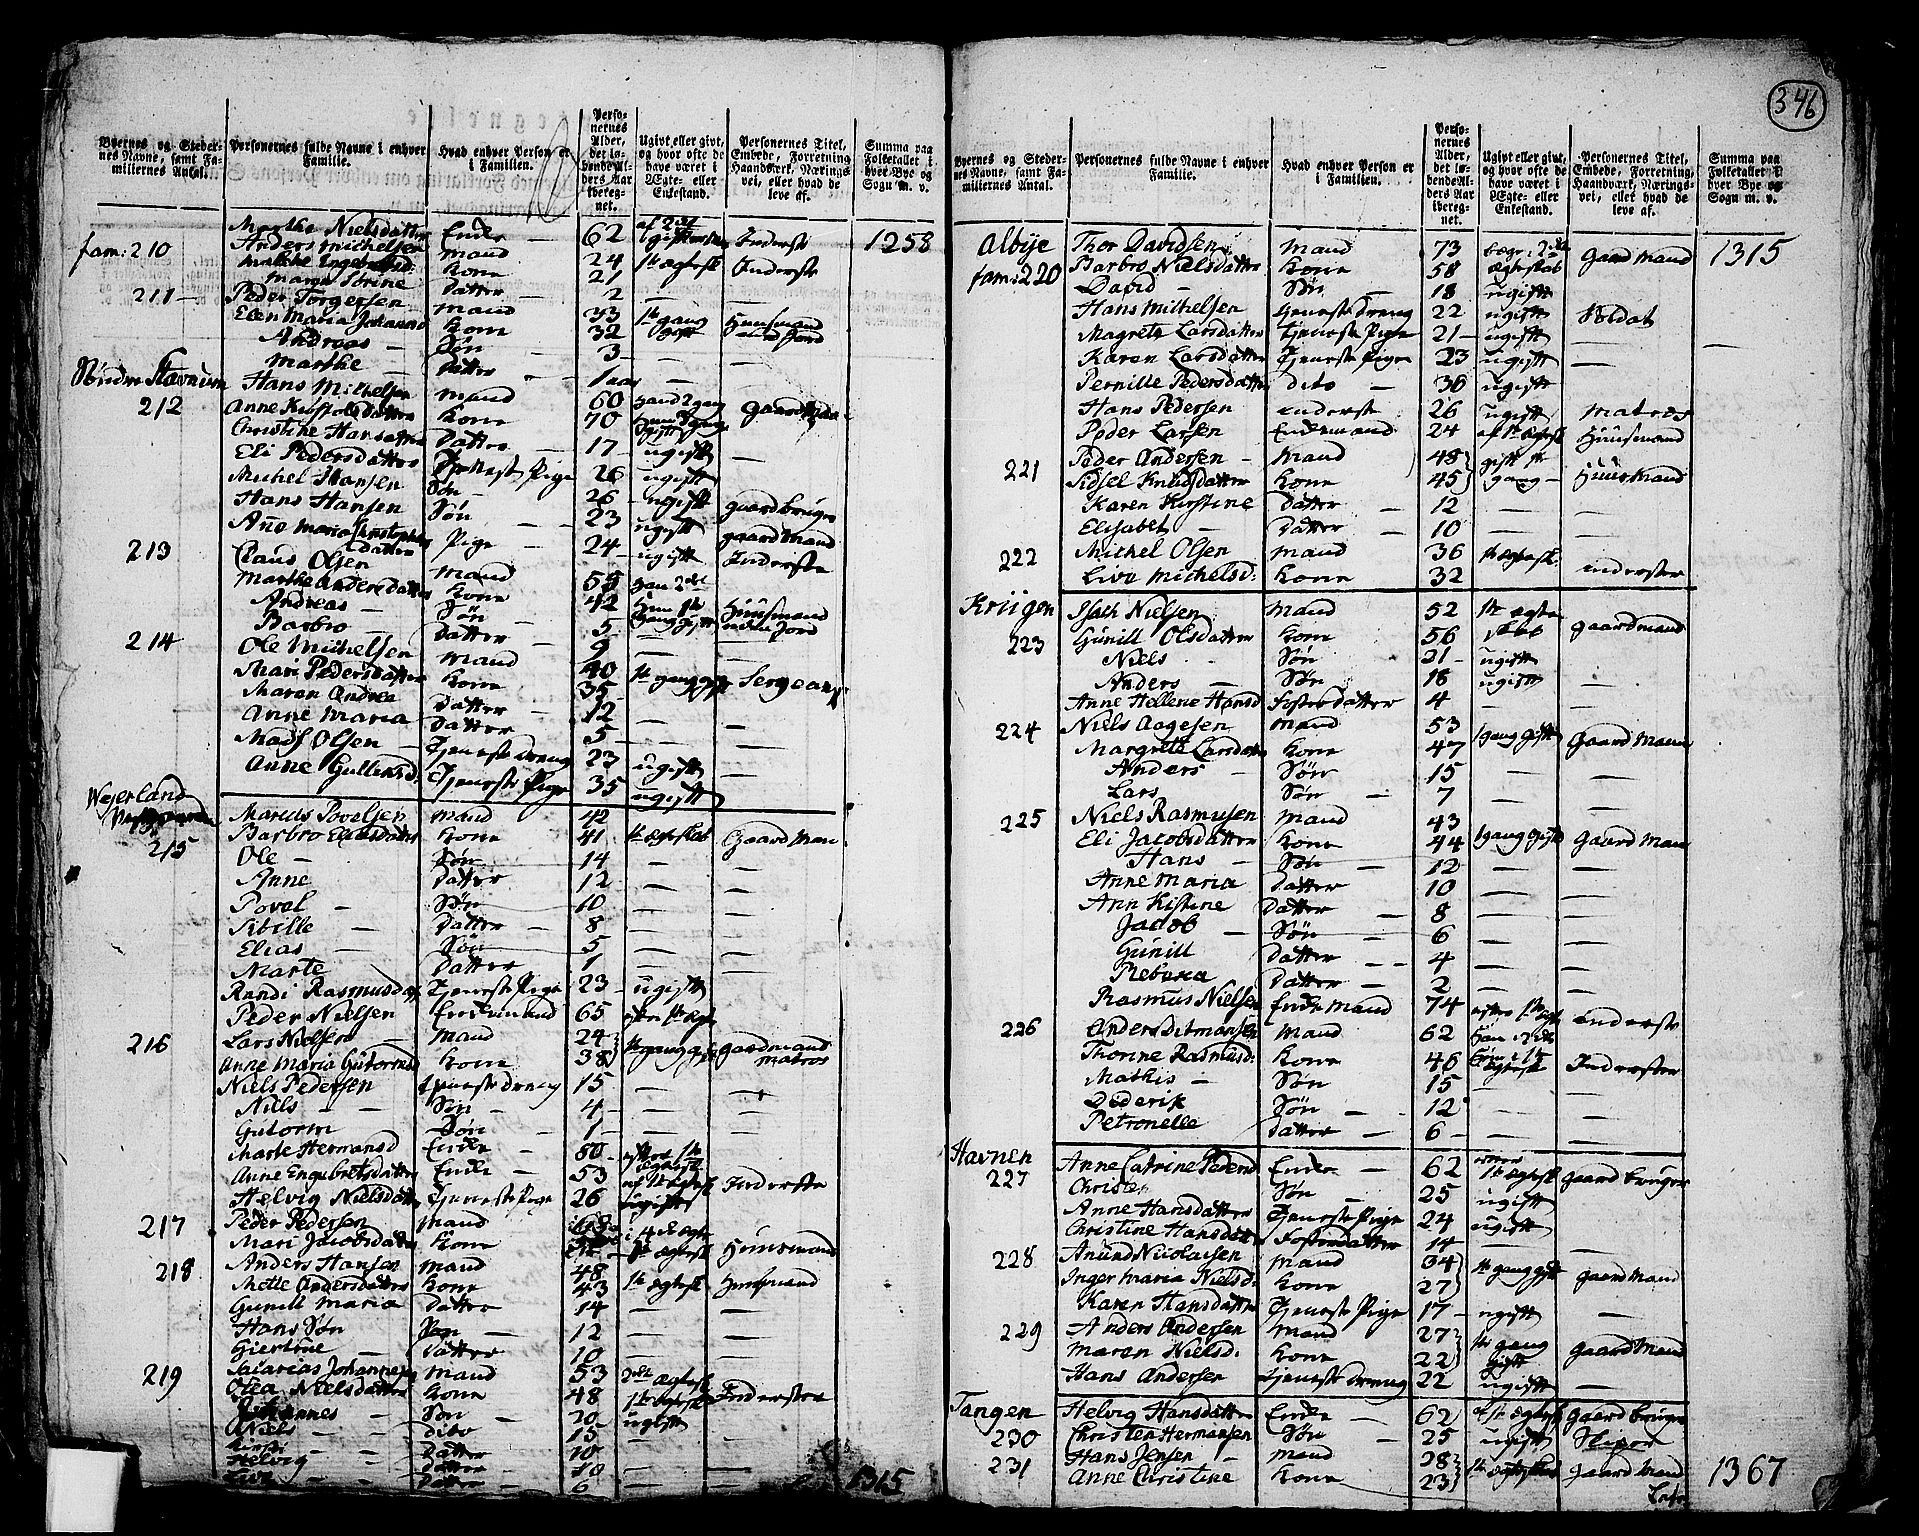 346
Byernes og Stedernes Navne, samt Familiernes Antal.
Personernes fulde Navne i enhver Familie.
Hvad enhver Person er i Familien.
Personernes Alder, det løbende Alders Aar iberegnet.
Ugivt eller givt, og hvor ofte de have været i Ægte- eller Enkestand.
Personernes Titel, Embede, Forretning, Haandværk, Næringsvei, eller hvad de leve af.
Summa paa Folketallet i hver Bye og Sogn m. v.
Marthe Nielsdatter Enke — 62 Inderste 1258
fam: 210 Anders Michelsen mand 24 Inderste
Kone 21
Maren Sørine Datter — 2 —
211 — Peder Torgersen mand 33 1te gang gift Huusmand med Jord
Elen Maria Johannsd Kone 32
Andreas — Søn — 3 — —
Marthe — Datter — 1 aar — —
Søndre Stavnum
212 Hans Michelsen mand 60
Anne Kone 70
Christine Hansdatter Datter 17 — ugift —
Eli Pedersdatter Tjeneste Pige 26 ugift —
Michel Hansen Søn — 26 — ugift gaardbruger
Hans Hansen Søn — 23 ugift gaardmand
Ane Maria Christophersdatter Pige — 24 — ugift Inderste
213 Claus Olsen mand 55 han 2det Huusmand uden Jord
Marthe Andersdatter Kone 42 hun 1te gang gift
Andreas — Søn — 5 — —
Barbro Datter — 9 — —
214 Ole Michelsen mand 40 1te gang gift Sergeant
Mari Pedersdatter Kone 35
Maren Andrea Datter — 12 — —
Anne Maria Datter — 5 — —
Mads Olsen — Tjeneste Dreng 23 ugift —
Anne Gullensd. Tjeneste Pige 35 ugift —
Wejerland
215 Marcus Povelsen mand 42 1te ægteskab Gaard Man
Barbro Eliasdatter Kone 41
Ole — Søn 14 — —
Anne Datter 12 — —
Povel — Søn 10 — —
Sibille — Datter — 8 — —
Elias — Søn 5 — —
Marte Datter 1 — —
Randi Rasmusdatt Tjeneste Pige 23 — ugift —
Peder Nielsen Enkemand 65
216 Lars Nielsen mand 24 1te gang gift gaardmand matros
Anne Maria Gutormsd Kone 38
Niels Pedersen tjeneste dreng 15 — — —
Niels — — Søn — 4 — — —
Gutorm Søn — 1 — — —
Marte Hermansd Enke — 80 —
Anne Engebretsdatter Enke — 53 Inderste
Helvig Nielsdatter Tjeneste Pige 26 ugift
217 Peder Pedersen mand
Mari Jacobsdatter Kone Huusmand
218 Anders Hansen mand 48 1te ægtesk Huusmand
Mette Andersdatter Kone 43
Gunill Maria Datter 14 — —
Hans Søn — 12 — —
Giertrue — Datter 10 — —
219 Sacarias Johannesen mand 53 2det ægtesk Inderster
Olea Nielsdatter Kone 48 1te ægtesk
Johannes — Søn — 20 — ugift
Niels — Dito 15 — —
Kirsti Datter 10 — —
Helvig — Datter — 10 — —
Live — — Datter — 6 — — 1315
Byernes og Stedernes Navne, samt Familiernes Antal.
Personernes fulde Navne i enhver Familie.
Hvad enhver Person er i Familien.
Personernes Alder, det løbende Alders Aar iberegnet.
Ugivt eller givt, og hvor ofte de have været i Ægte- eller Enkestand.
Personernes Titel, Embede, Forretning, Haandværk, Næringsvei, eller hvad de leve af.
Summa paa Folketallet i hver Bye og Sogn m. v.
Albye Thor Davidsen mand 73 Gaard Mand 1315
fam: 220 Barbro Nielsdatter Kone 58 ægteskab
David — Søn — 18 ugift —
Hans Michelsen tjeneste Dreng 22 ugift Soldat
Magrete Larsdatter Tjeneste Pige 21 — ugift —
Karen Larsdatter Tjeneste Pige 23 ugift —
Pernille Pedersdatter dito — 36 ugift —
Hans Pedersen enderste 26 ugift matros
Peder Larsen Enkemand 24 af 1te ægtesk Huusmand
221 Peder Andersen — mand 48 gift 1te gang — Huusmand
Sidsel Knudsdatter Kone 45
Karen Kirstine Datter — 12 — —
Elisabet — Datter — 10 — —
222 Michel Olsen mand 36 1te ægtesk: inderster
Live Michelsd: Kone — 32
Kriigen Isach Nielsen mand 52 1te ægteskab gaardmand
223 Gunill Olsdatter Kone 56
Niels — Søn 21 — ugift —
Anders — Søn 18 ugift —
Anne Hellene Hansd Fosterdatter 4 — —
224 Niels Aagesen mand 53 1 gang gift Gaard Mann
Margrete Larsdatter Kone 47
Anders — Søn 15 — —
Lars Søn — 7 — —
225 Niels Rasmusen mand 43 1 gang gift gaard Man
Eli Jacobsdatter Kone 44
Hans — Søn — 12 — —
Anne Maria Datter 10 — —
Ann Kistine Datter — 8 — —
Jacob — Søn — 6 — —
Gunill Datter — 4 — —
Rebecca Datter — 2 — —
Rasmus Nielsen Enke Mand 74 enderste
226 Anders Ditmansen mand 62 Inderster
Thorine Rasmusd: Kone 46
Mathis — Søn 15 — —
Diderik Søn — 12 — —
Petronelle datter — 6 — — —
Havnen
227 Anne Catrine Pedersd Enke — 62 1te ægtesk gaard bruger
Christen Søn — 25 ugift
Anne Hansdatter Tjeneste Pige 24 ugift
Christine Hansdatt Fosterdatter 14 — — —
228 Anund Nicolaisen mand 34 1te gang gift gaard mand
Inger Maria Nielsd: Kone 27
Karen Hansdatter Tjeneste Pige 17 — ugift —
229 Anders Andersen mand 27 1te gang gift gaard Mand
Maren Nielsd. Kone 22
Hans Andersen tjeneste dreng 22 ugift —
Tangen Helvig Hansdatter Enke — 62 af 1te ægtesk gaard bruger
230 Christen Hermansen Søn — 25 ugift
231 Hans Jensen — mand 28 1te ægteskab gaard Mand
Anne Christine Kone 23 1367